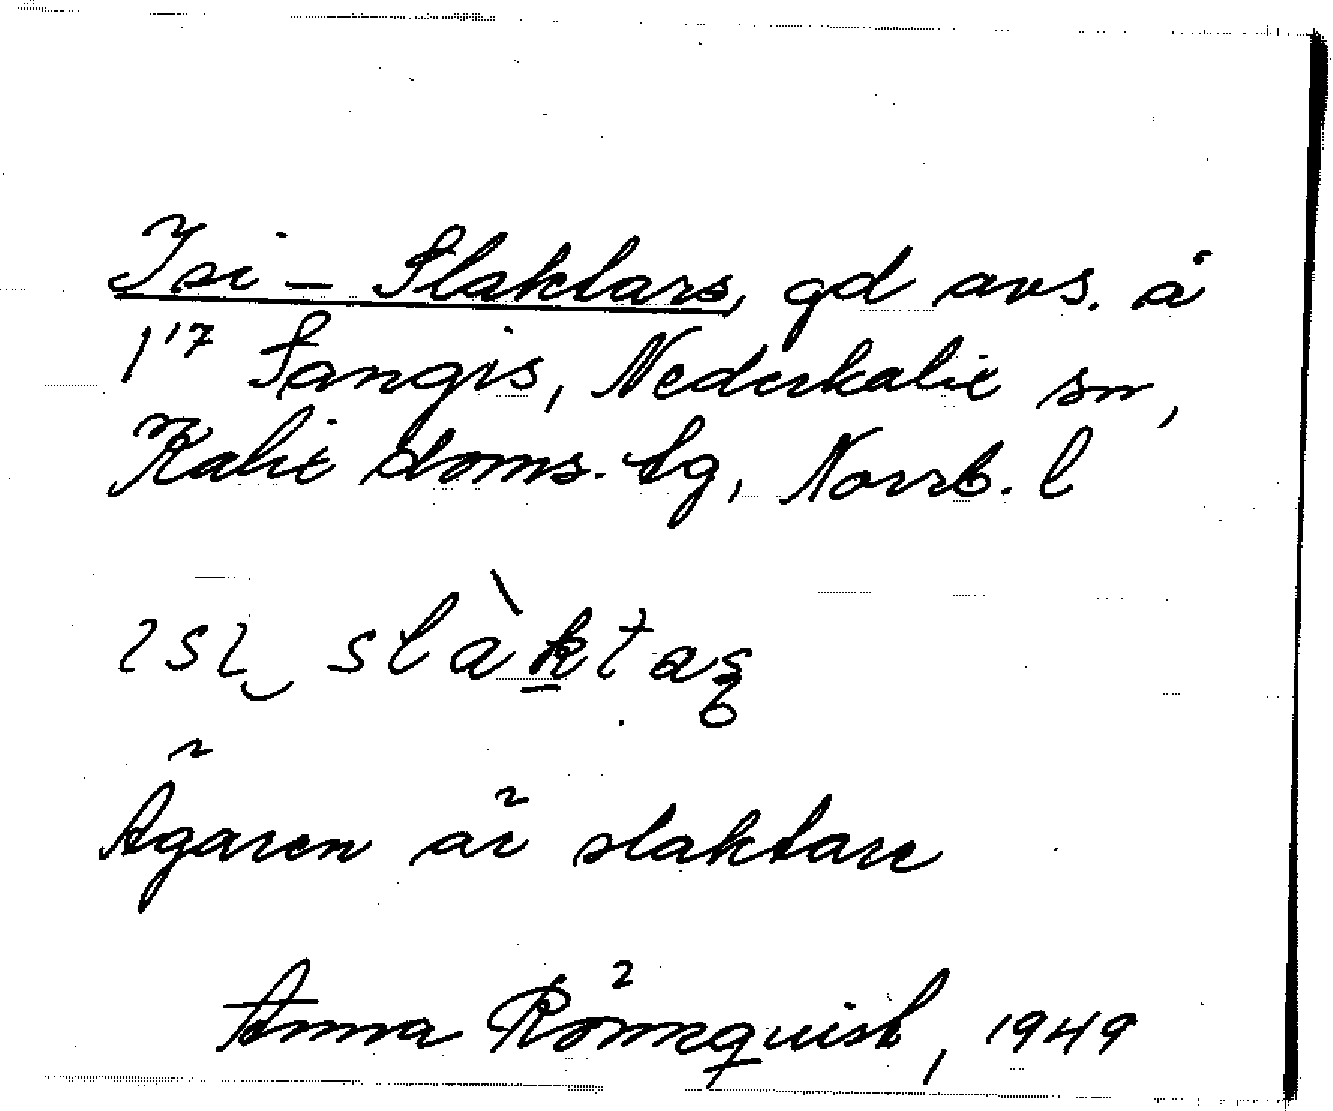 Isi-Slaktars, gd avs. å
1¹⁷ Sangis, Nederkalix sn,
Kalix doms. tg, Norrb. l
ɪsɪ slàktaʂ
Ägaren är slaktare
Anna Rönnquist, 1949